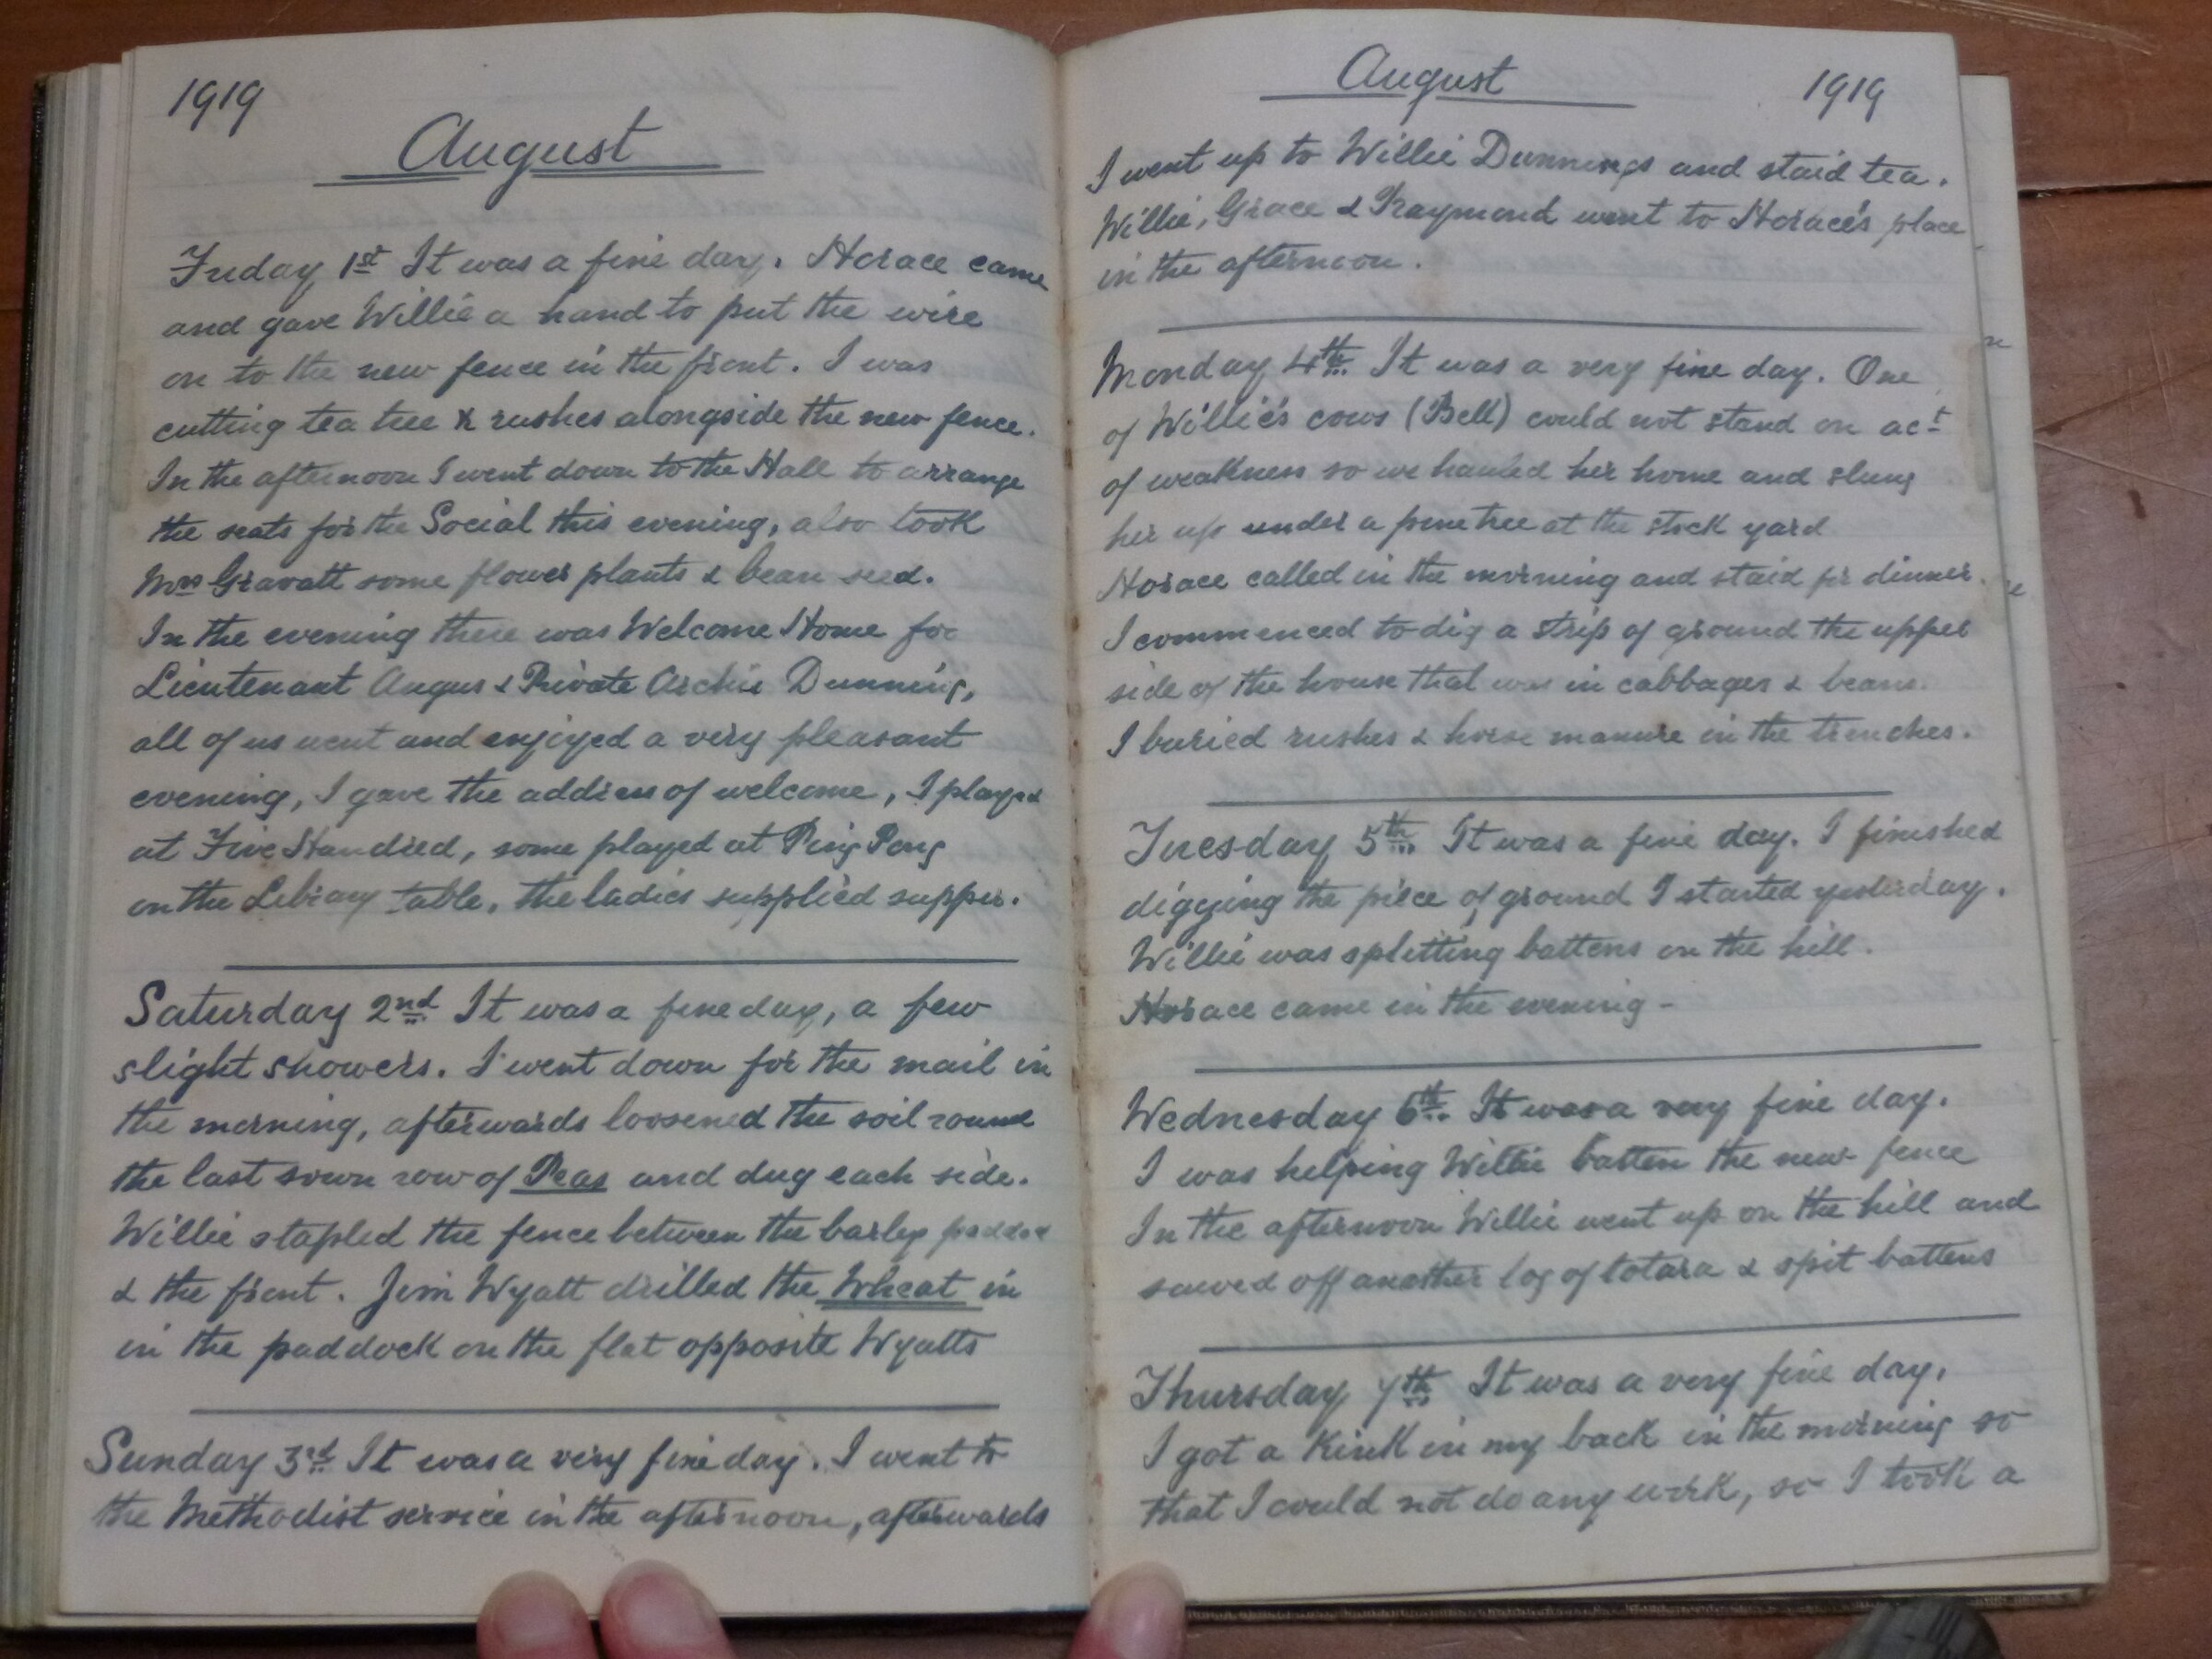 1919
August
Friday 1st It was a fine day. Horace came
and gave Willie a hand to put the wire
on to the new fence in the front. I was
cutting tea tree & rushes alongside the new fence.
In the afternoon I went down to the Hall to arrange
the seats for the Social this evening, also took
Mrs Gravatt some flower plants & bean seed.
In the evening there was Welcome Home for
Lieutenant Angus & Private Archie Dunning,
all of us went and enjoyed a very pleasant
evening, I gave the address of welcome, I played
at Five Hundred, some played at Ping Pong
on the Library table, the ladies supplied supper.
Saturday 2nd It was a fine day, a few
slight showers. I went down for the mail in
the morning, afterwards loosened the soil round
the last sown row of Peas and dug each side.
Willie stapled the fence between the barley
& the front. Jim Wyatt drilled the Wheat in
in the paddock on the flat opposite Wyatts
Sunday 3rd It was a very fine day. I went to
the Methodist service in the afternoon, afterwards
August 1919
I went up to Willie Dunnings and staid tea.
Willie, Grace & Raymond went to Horace's place
in the afternoon.
Monday 4th It was a very fine day. One
of Willie's cows (Bell) could not stand on act
of weakness so we hauled her home and slung
her up under a pine tree at the stock yard
Horace called in the morning and staid for dinner.
I commenced to dig a strip of ground the upper
side of the house that was in cabbages & beans.
I buried rushes & horse manure in the trenches.
Tuesday 5th It was a fine day. I finished
digging the piece of ground I started yesterday.
Willie was splitting battens on the hill.
Horace came in the evening -
Wednesday 6th. It was a very fine day.
I was helping Willie batten the new fence
In the afternoon Willie went up on the hill and
sawed off another log of totara & spit battens
Thursday 7th It was a very fine day.
I got a kink in my back in the morning so
that I could not do any work, so I took a